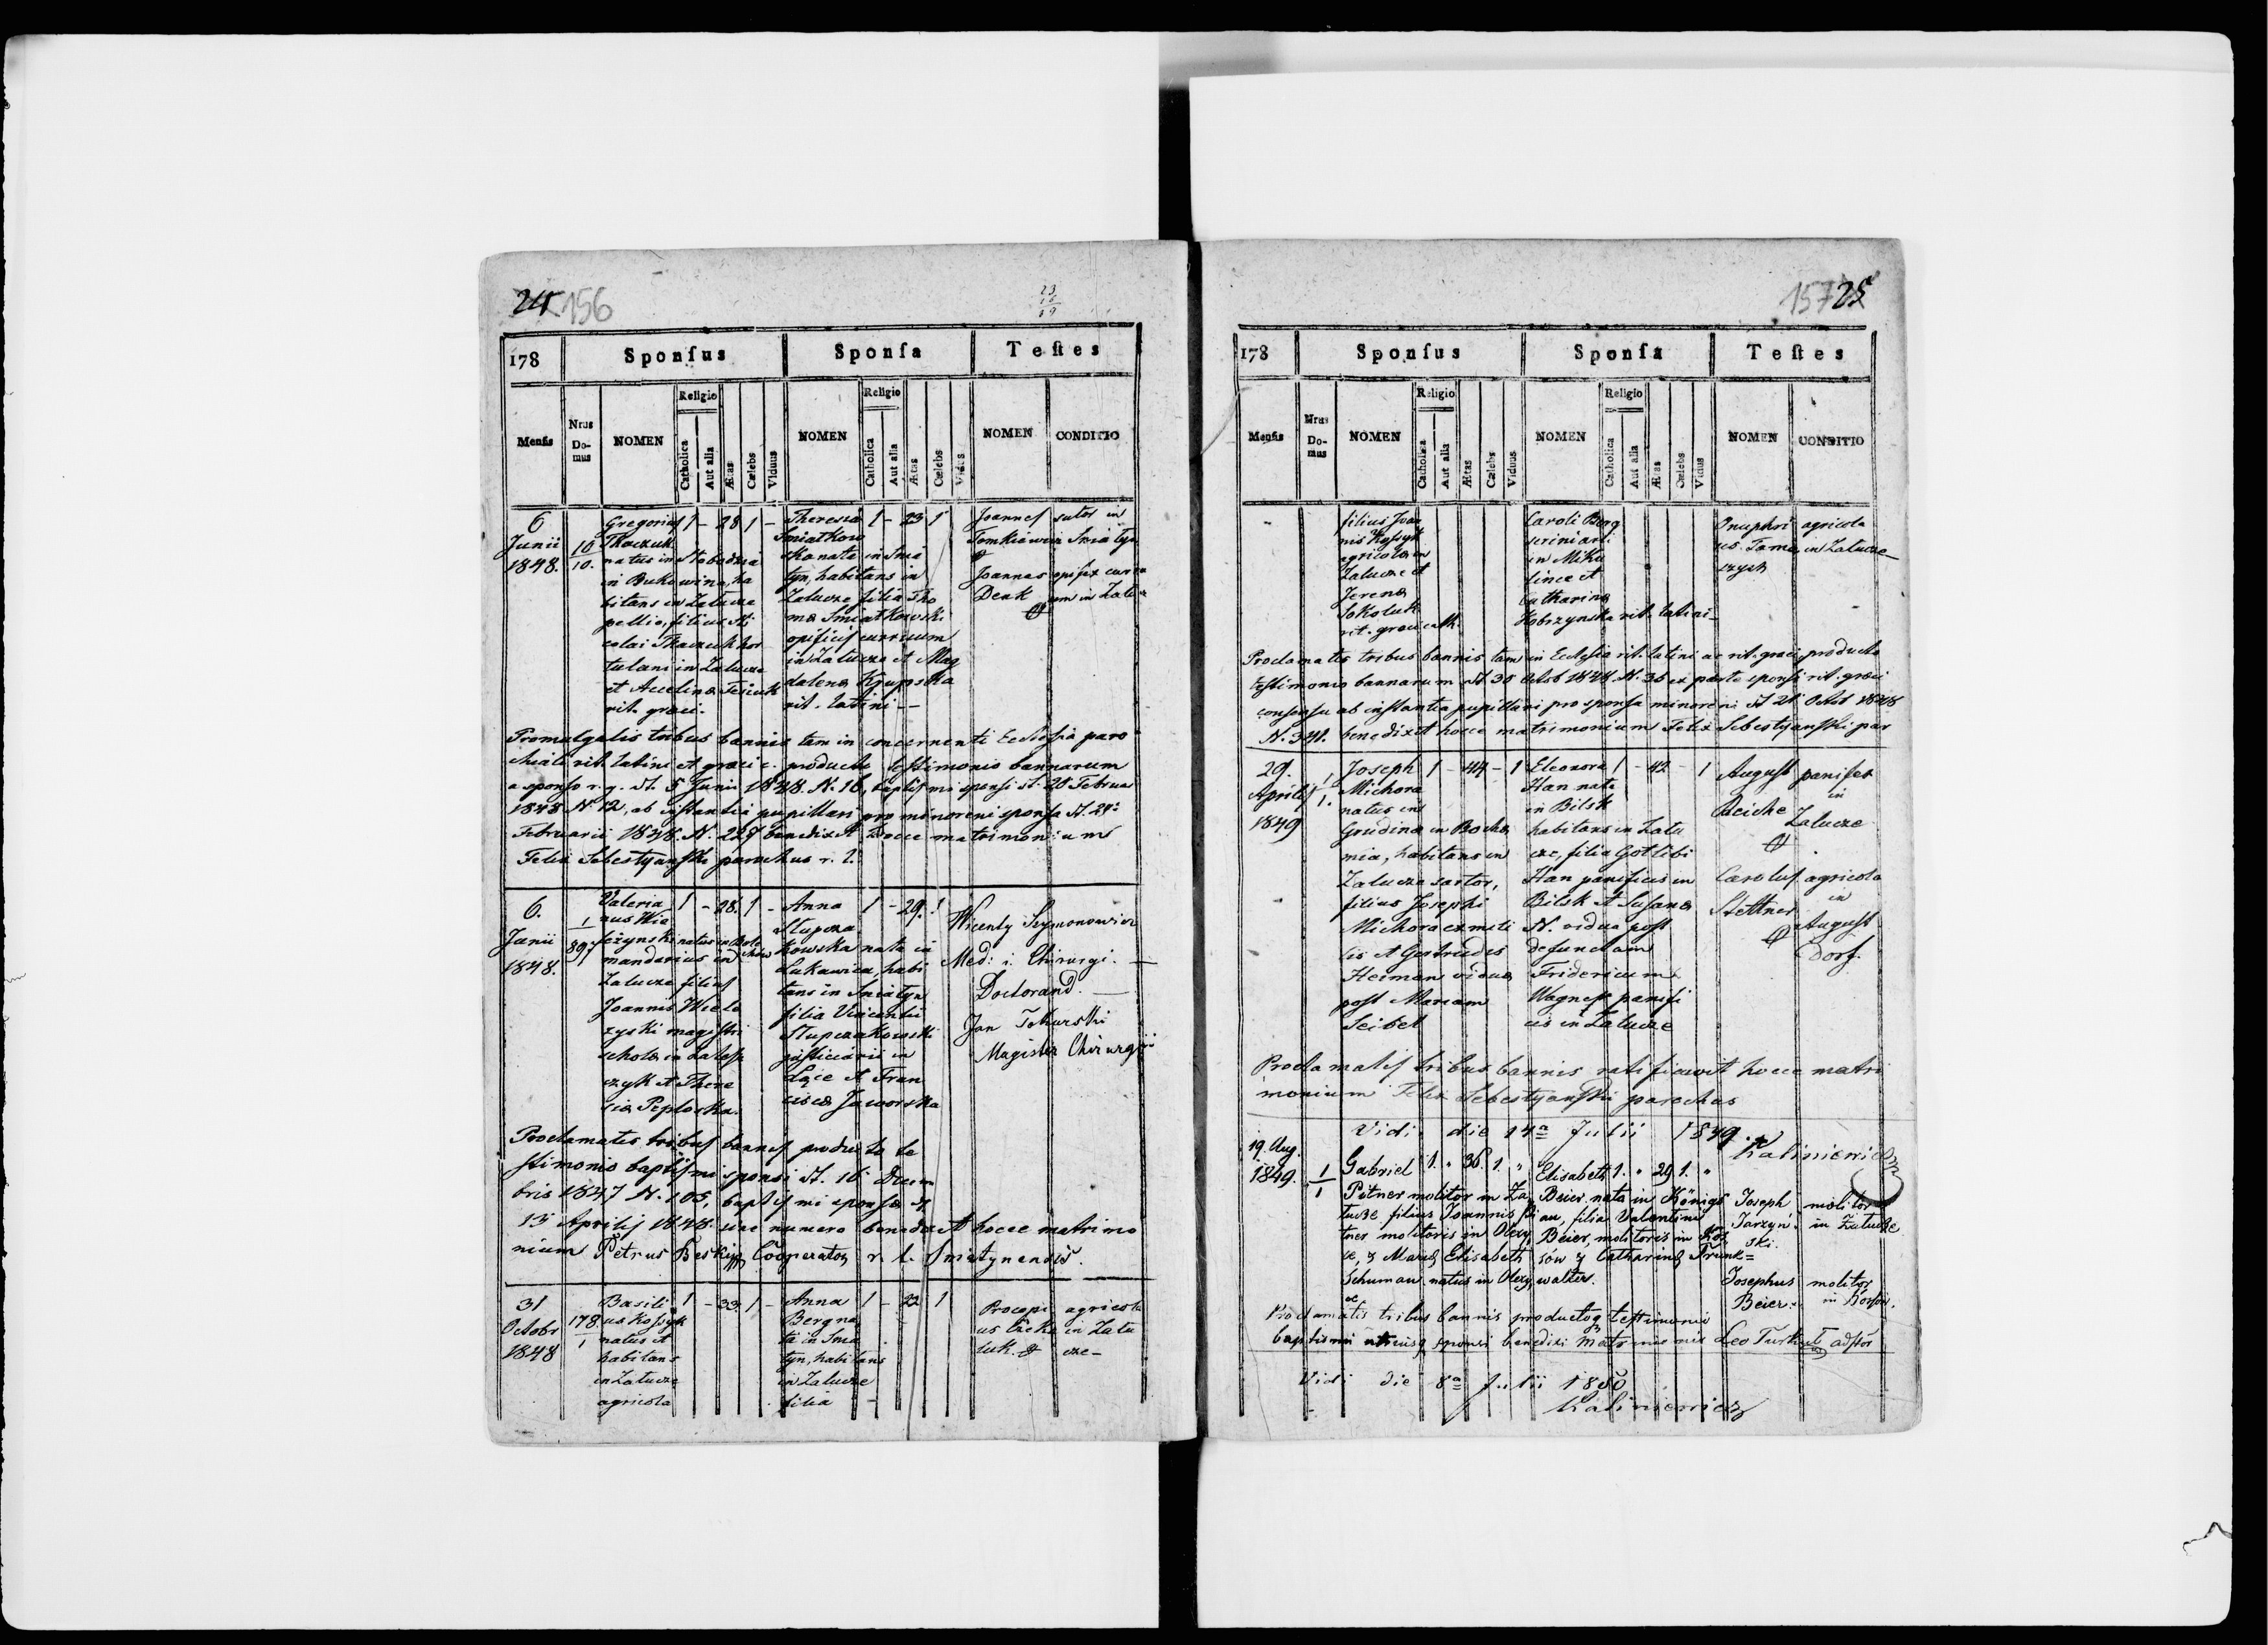 24 156
23
19
178 Sponſus Sponſa Teſtes
Menſis Nrus Domus NOMEN Religio Catholica Aut alia Ætas Cœlebs Viduus NOMEN Religio Catholica Aut alia Ætas Cœlebs Vidua NOMEN CONDITIO
6 Junii 1848. 10 10.
Gregorius 1 - 28 1 -
Tkaczuk
natus in Slobodzia
in Bukowina, ha
bitans in Zalucze
pellio, filius Ni
colai Tkaczuk hor
tulani in Zalucze
et Acelina
rit. graeci.
Theresia 1 - 23 1
Sniatkow
ska nata in Snia
tyn, habitans in
Zalucze filia Tho
mæ Sniatkowski
opificis curruum
in Zalucze et Mag
dalena Krupska
rit. latini -
Joannes sutor in
Tomkiewicz Sniatyn
Joannes opifex curru
Denk um in Zalucze
Promulgatis tribus bannis tam in concernenti Ecclesia paro
chiali rit. latini et graeci c. producto testimonio bannarum
a sponso r. g. dt. 5 Junii 1848. N. 16, baptismi sponsi dt. 20 Februar
1848 N. 12, ab instantia pupillari pro minoreni sponsa dt. 24
Februarii 1848. N. 227 benedixit hocce matrimonium
Felix Sebestyanski parochus r. l.
6. Junii 1848. 1 89.
Valeria 1 - 28. 1 -
nus Wie
mandarius in
Zalucze filius
Joannis Wielo
zyski magistri
schola in Zalesz
czyk et There
sia Peploska.
Anna 1 - 29. 1
Slupcza
kowska nata in
Lukawica, habi
tans in Sniatyn
filia Vincentii
Slupczakowski
justiciarii in
Łące et Fran
cisca Jaworska
Wicenty Szymonowicz
Med: i. Chirurgi. -
Doctorand. -
Jan Tokarski
Magister Chirurgii
Proclamatis tribus bannis producto te
stimonio baptismi sponsi dt. 16 Decem
bris 1847 N. 105, baptismi sponsæ dt
13 Aprilis 1848. sine numero benedixit hocce matrimo
nium Petrus Beskijj Cooperator r. l. Sniatynensis.
31 Octobr 1848 178. 1
Basili 1 - 33 1 -
us Kossyk
natus et
habitans
in Zalucze
agricola
Anna 1 - 22 1
Berg na
ta in Snia
tyn, habitans
in Zalucze
filia
Procopi agricola
us in Zalu
luk. cze -
157 25
178 Sponſus Sponſa Teſtes
Menſis Nrus Domus NOMEN Religio Catholica Aut alia Ætas Cœlebs Viduus NOMEN Religio Catholica Aut alia Ætas Cœlebs Vidua NOMEN CONDITIO
filius Joan
nis Kossyk
agricola in
Zalucze et
Jerena
Sokoluk
rit. graeci cath.
Caroli Berg
scriniari
in Miku
lince et
Catharina
Kobrzynska rit. latini -
Onuphri agricola
us in Zalucze
Proclamatis tribus bannis tam in Ecclesia rit. latini ac rit. graeci, producto
testimonio bannarum dt 30 Octob 1848. N. 36 ex parte sponsi rit. graeci
consensu ab instantia pupillari pro sponsa minoreni dt 21 Octob 1848
N. 341. benedixit hocce matrimonium Felix Sebestyanski par
29. Aprilis 1849 1 1.
Joseph 1 - 44 - 1
Michora
natus in
Grudina in Bohe
mia, habitans in
Zalucze sartor,
filius Josephi
Michora exmili
tis et Gertrudis
Heiman viduus
post Mariam
Seibet
Eleonora 1 - 42 - 1
Han nata
in Bilsk
habitans in Zalu
cze, filia Gotlibi
Han panificis in
Bilsk et Susana
N. vidua post
defunctum
Fridericum
Wagner panifi
cis in Zalucze
August panifex
Reiche in Zalucze
Carolus agricola
Stettner in August
Dorf.
Proclamatis tribus bannis ratificavit hocce matri
monium Felix Sebestyanski parochus
Vidi die 14a Julii 1849.
Kaliniewicz
19. Aug. 1849. 1 1
Gabriel 1. " 36. 1. " Elisabeth 1. " 29 1. "
Pitner molitor in Za Beier nata in Königs
lucze filius Joannis Pi au, filia Valentini
tner molitoris in Olexy Beier, molitoris in Kos
ce, & Mariæ Elisabeth sów & Catharinæ Frank=
Schuman natus in Olexy walter.
ce
Joseph molitor
Jarzyn in Zalucze
ski.
Josephus molitor
Beier. in Kossow.
Proclamatis tribus bannis productoq testimonio
baptismi utriusq sponsi benedixi matrimonio Leo adstor
Vidi die 8a Julii 1850
Kaliniewicz